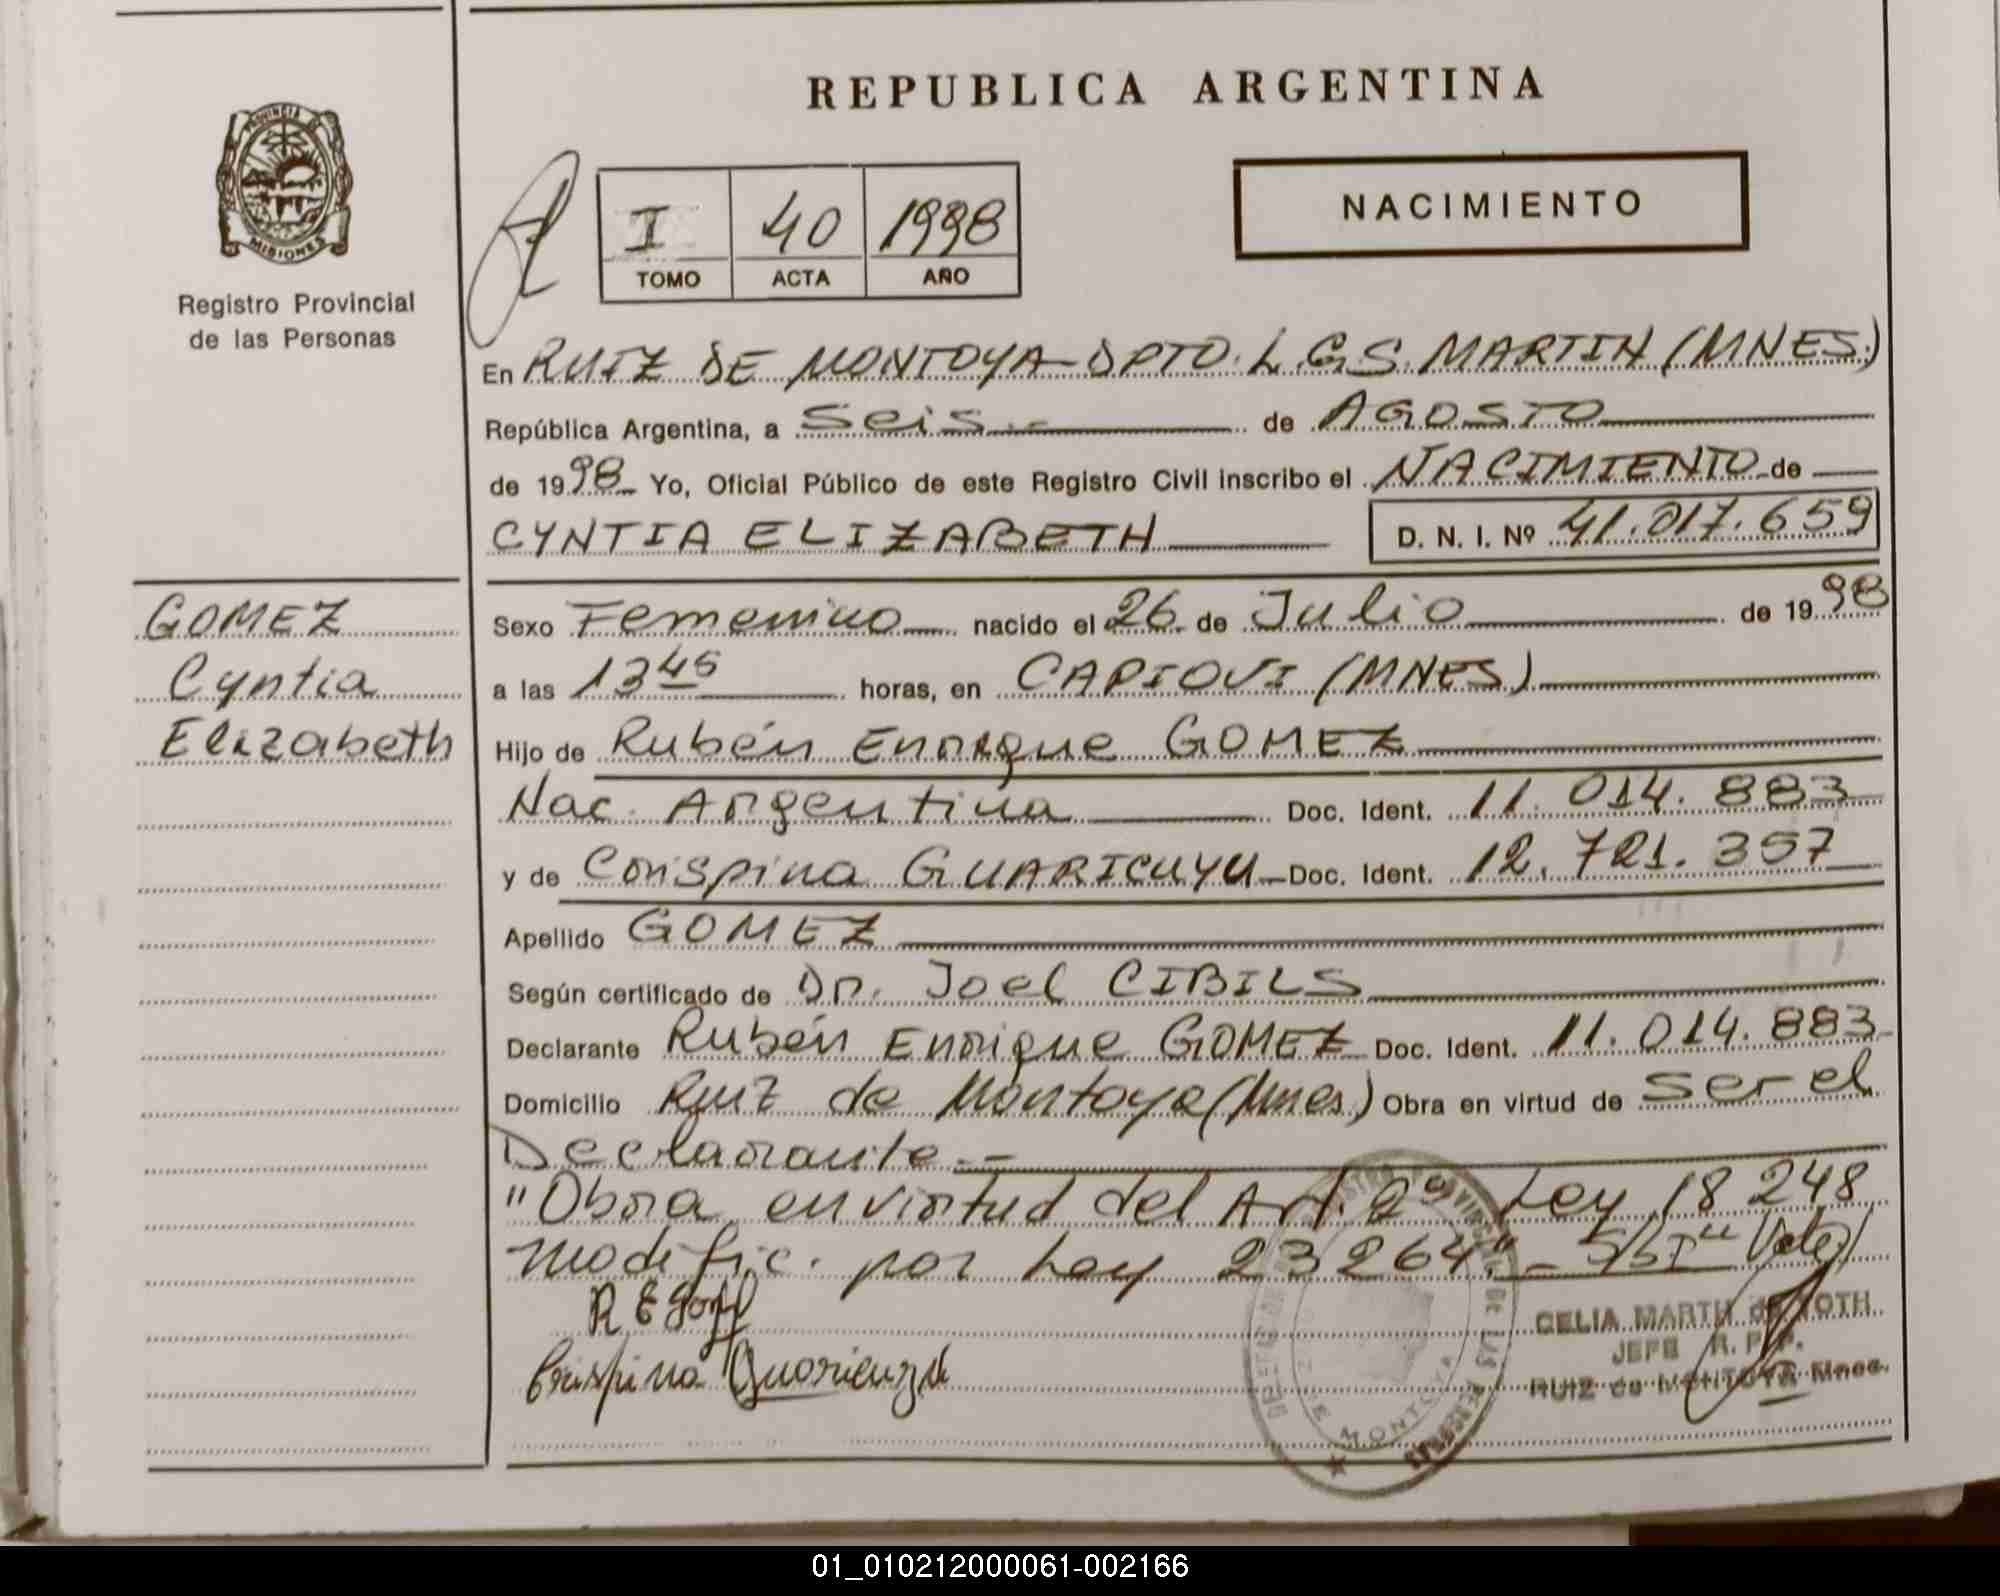 REPUBLICA ARGENTINA
PROVINCIA DE
MISIONES
Registro Provincial
de las Personas
I 40 1998
TOMO ACTA AÑO
NACIMIENTO
En RUIZ DE MONTOYA-DPTO. L.G.S. MARTIN (MNES.)
República Argentina, a Seis.- de AGOSTO
de 1998 Yo, Oficial Público de este Registro Civil inscribo el NACIMIENTO de
CYNTIA ELIZABETH D. N. I. Nº 41.017.659
GOMEZ
Cyntia
Elizabeth
Sexo Femenino nacido el 26 de Julio de 1998
a las 13 45 horas, en CAPIOVI (MNES)
Hijo de Rubén Enrique GOMEZ
Nac. Argentina Doc. Ident. 11.014.883
y de Crispina GUARICUYU Doc. Ident. 12.721.357
Apellido GOMEZ
Según certificado de Dr. Joel CIBILS
Declarante Rubén Enrique GOMEZ Doc. Ident. 11.014.883
Domicilio Ruiz de Montoya (Mnes.) Obra en virtud de ser el
Declarante.-
"Obra en virtud del Art. 2º Ley 18 248
modific. por Ley 23 264".- S/b I" Vale
Crispina
CELIA MARTH de ROTH
JEFE R. P. P.
RUIZ de MONTOYA Mnes.
MONTOYA
01_010212000061-002166